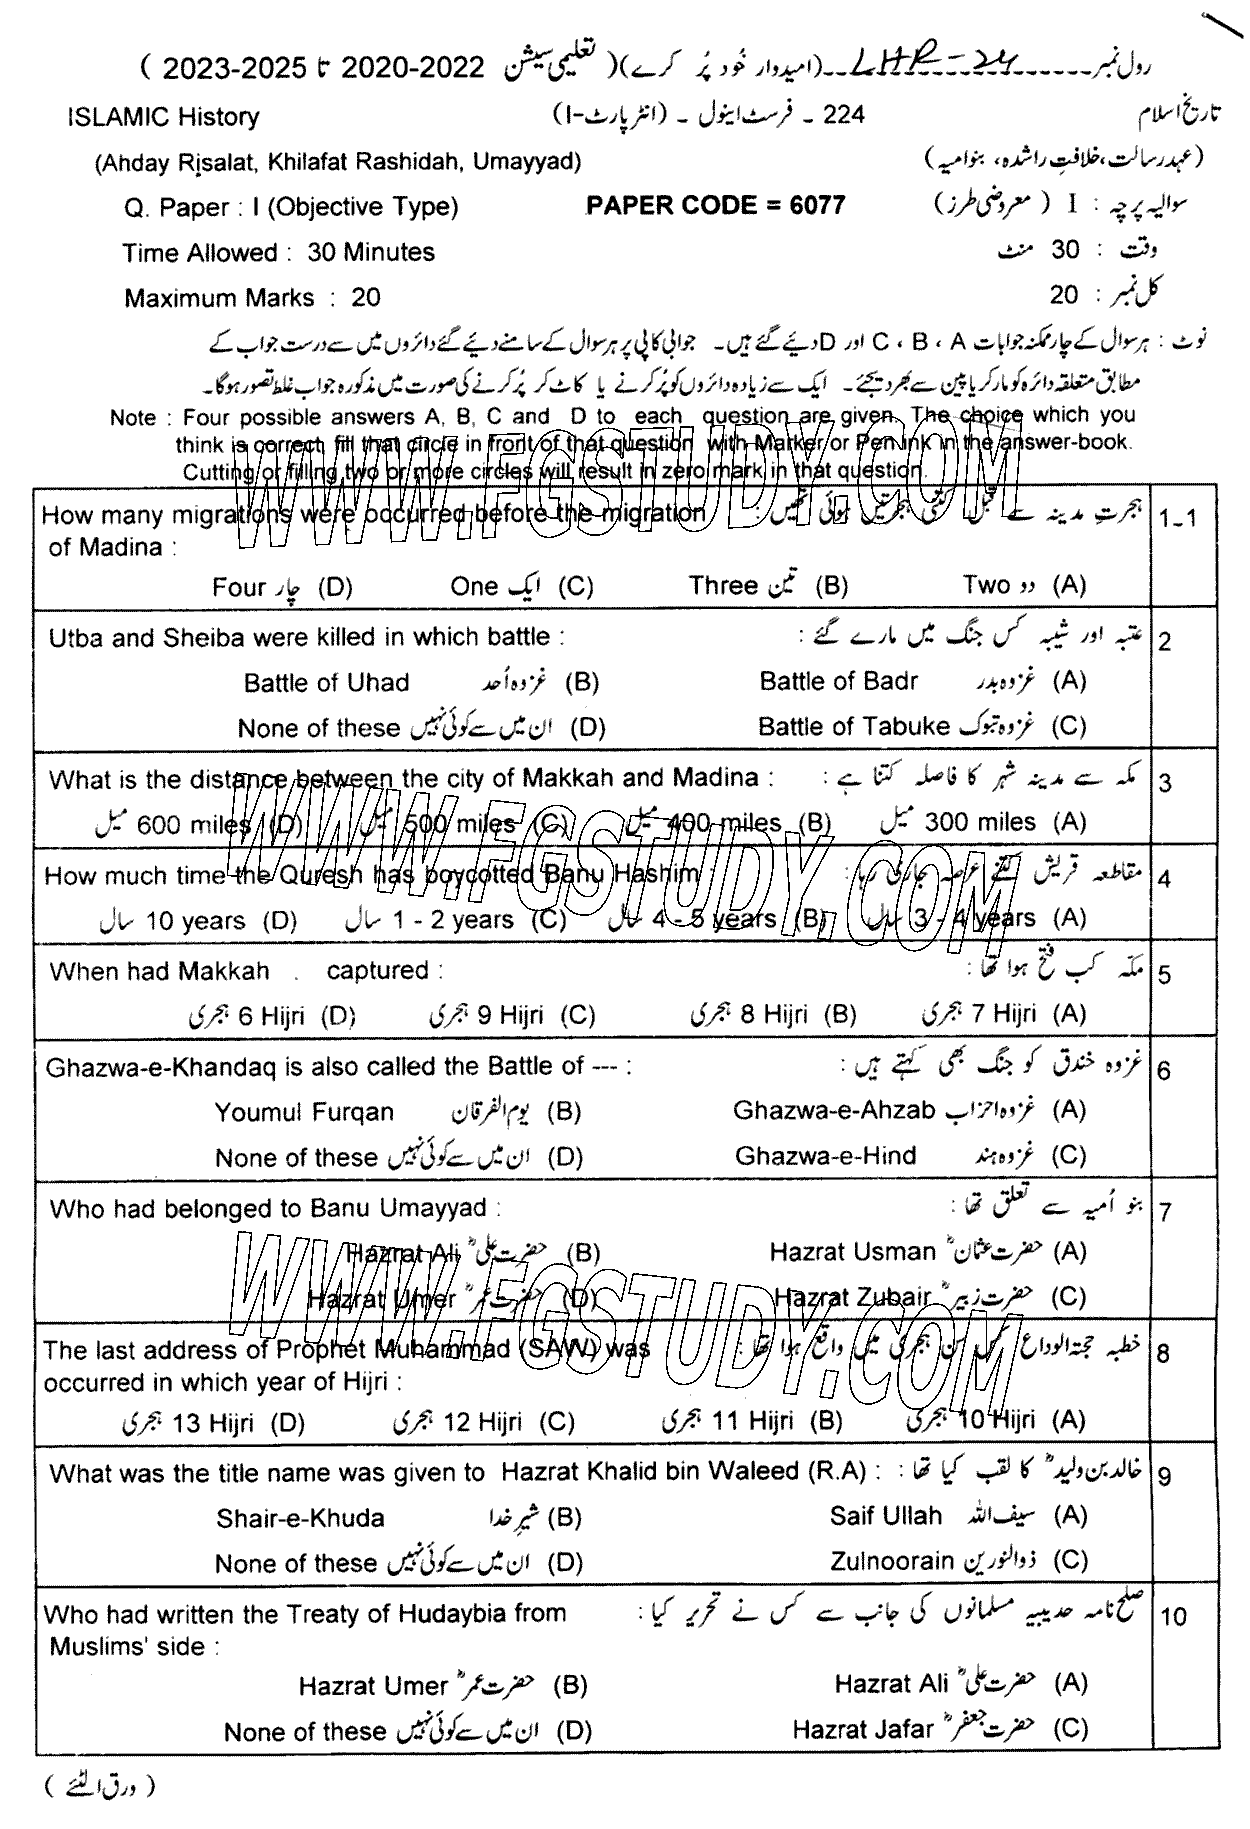 رول نمبر LHR-24 (امیدوار خود پُر کرے) ( تعلیمی سیشن 2020-2022 تا 2023-2025 )
ISLAMIC History 224 ۔ فرسٹ اینول ۔ (انٹر پارٹ-I) تاریخ اسلام
(Ahday Risalat, Khilafat Rashidah, Umayyad) (عہد رسالت، خلافتِ راشدہ، بنو امیہ)
Q. Paper : I (Objective Type) PAPER CODE = 6077 سوالیہ پرچہ : I ( معروضی طرز)
Time Allowed : 30 Minutes وقت : 30 منٹ
Maximum Marks : 20 کل نمبر : 20
نوٹ : ہر سوال کے چار ممکنہ جوابات A ، B ، C اور D دیئے گئے ہیں۔ جوابی کاپی پر ہر سوال کے سامنے دیئے گئے دائروں میں سے درست جواب کے
مطابق متعلقہ دائرہ کو مارکر یا پین سے بھر دیجئے۔ ایک سے زیادہ دائروں کو پُر کرنے یا کاٹ کر پُر کرنے کی صورت میں مذکورہ جواب غلط تصور ہوگا۔
Note : Four possible answers A, B, C and D to each question are given. The choice which you
think is correct, fill that circle in front of that question with Marker or Pen ink in the answer-book.
Cutting or filling two or more circles will result in zero mark in that question.
How many migrations were occurred before the migration ہجرتِ مدینہ سے قبل کتنی ہجرتیں ہوئی تھیں : 1-1
of Madina :
Four چار (D) One ایک (C) Three تین (B) Two دو (A)
Utba and Sheiba were killed in which battle : عتبہ اور شیبہ کس جنگ میں مارے گئے : 2
Battle of Uhad غزوہ اُحد (B) Battle of Badr غزوہ بدر (A)
None of these ان میں سے کوئی نہیں (D) Battle of Tabuke غزوہ تبوک (C)
What is the distance between the city of Makkah and Madina : مکہ سے مدینہ شہر کا فاصلہ کتنا ہے : 3
میل 600 miles (D) میل 500 miles (C) میل 400 miles (B) میل 300 miles (A)
How much time the Quresh has boycotted Banu Hashim : مقاطعہ قریش کتنے عرصہ جاری رہا : 4
سال 10 years (D) سال 1 - 2 years (C) سال 4 - 5 years (B) سال 3 - 4 years (A)
When had Makkah . captured : مکہ کب فتح ہوا تھا : 5
ہجری 6 Hijri (D) ہجری 9 Hijri (C) ہجری 8 Hijri (B) ہجری 7 Hijri (A)
Ghazwa-e-Khandaq is also called the Battle of --- : غزوہ خندق کو جنگ بھی کہتے ہیں : 6
Youmul Furqan یوم الفرقان (B) Ghazwa-e-Ahzab غزوہ احزاب (A)
None of these ان میں سے کوئی نہیں (D) Ghazwa-e-Hind غزوہ ہند (C)
Who had belonged to Banu Umayyad : بنو اُمیہ سے تعلق تھا : 7
Hazrat Ali حضرت علیؓ (B) Hazrat Usman حضرت عثمانؓ (A)
Hazrat Umer حضرت عمرؓ (D) Hazrat Zubair حضرت زبیرؓ (C)
The last address of Prophet Muhammad (SAW) was خطبہ حجتہ الوداع کس سن ہجری میں واقع ہوا تھا : 8
occurred in which year of Hijri :
ہجری 13 Hijri (D) ہجری 12 Hijri (C) ہجری 11 Hijri (B) ہجری 10 Hijri (A)
What was the title name was given to Hazrat Khalid bin Waleed (R.A) : خالد بن ولیدؓ کا لقب کیا تھا : 9
Shair-e-Khuda شیرِ خدا (B) Saif Ullah سیف اللہ (A)
None of these ان میں سے کوئی نہیں (D) Zulnoorain ذوالنورین (C)
Who had written the Treaty of Hudaybia from صلح نامہ حدیبیہ مسلمانوں کی جانب سے کس نے تحریر کیا : 10
Muslims' side :
Hazrat Umer حضرت عمرؓ (B) Hazrat Ali حضرت علیؓ (A)
None of these ان میں سے کوئی نہیں (D) Hazrat Jafar حضرت جعفرؓ (C)
( ورق الٹئے )
WWW.FGSTUDY.COM
WWW.FGSTUDY.COM
WWW.FGSTUDY.COM